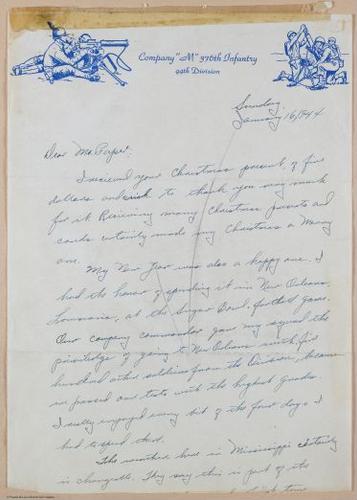 Company "M" 376th Infantry
94th Division
Sunday
January 16, 1944
Dear Mr. Pieper:
I received your Christmas present of five
dollars and wish to thank you very much
for it. Receiving many Christmas presents and
cards certainly made my Christmas a Merry
one.
My New Year was also a happy one. I
had the honor of spending it in New Orleans,
Louisiana, at the Sugar Bowl football game.
Our company commander gave my squad the
priviledge of going to New Orleans with five
hundred other soldiers from the Division, because
we passed our tests with the highest grades.
I really enjoyed every bit of the four days I
had to spend there.
The weather here in Mississippi certainly
is changeable. They say this is part of its